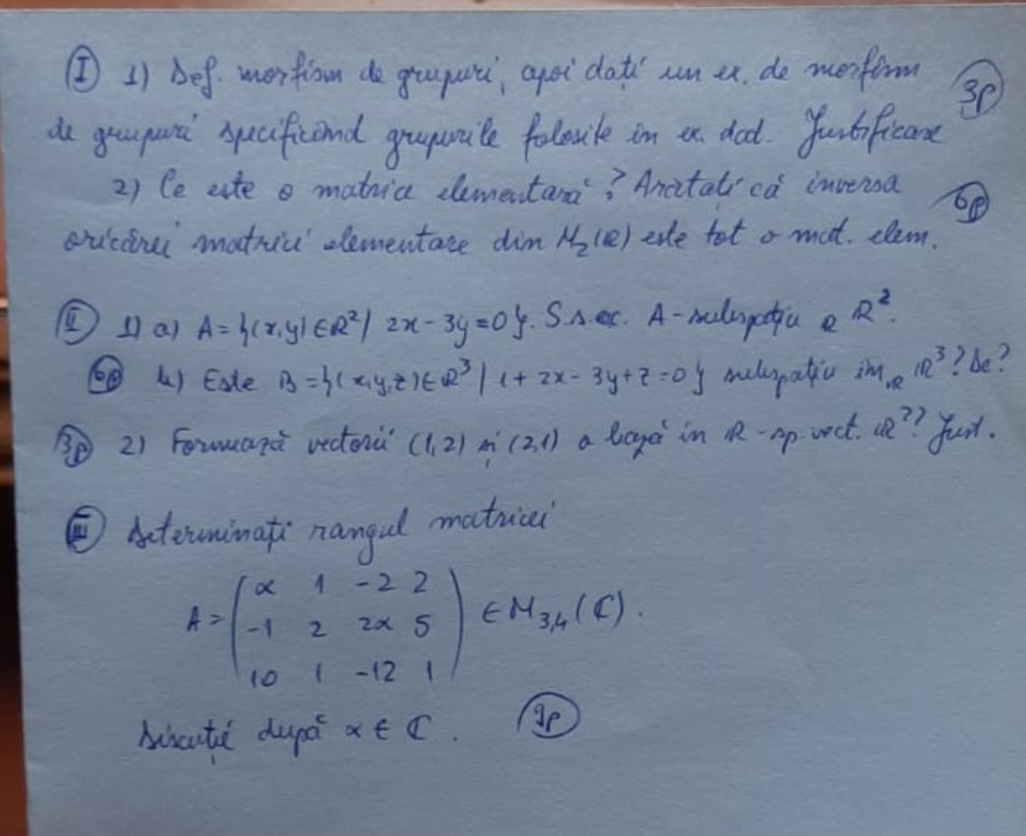 I 1) Def. morfism de grupuri, apoi dați un ex. de morfism 3p
de grupuri specificând grupurile folosite în ex. dat. Justificare
2) Ce este o matrice elementară? Arătați că inversa 6p
oricărei matrici elementare din M₂(ℝ) este tot o mat. elem.
II 1) a) A = {(x,y)∈ℝ² | 2x - 3y = 0}. S.s.c. A-subspațiu ℝ ℝ².
6p b) Este B = {(x,y,z)∈ℝ³ | 1 + 2x - 3y + z = 0} subspațiu în ℝ ℝ³? De?
3p 2) Formează vectorii (1,2) și (2,1) o bază în ℝ-sp. vect. ℝ²? Just.
III Determinați rangul matricei
A = ( α 1 -2 2
-1 2 2α 5
10 1 -12 1 ) ∈ M₃,₄(ℂ).
Discuție după α ∈ ℂ. 9p